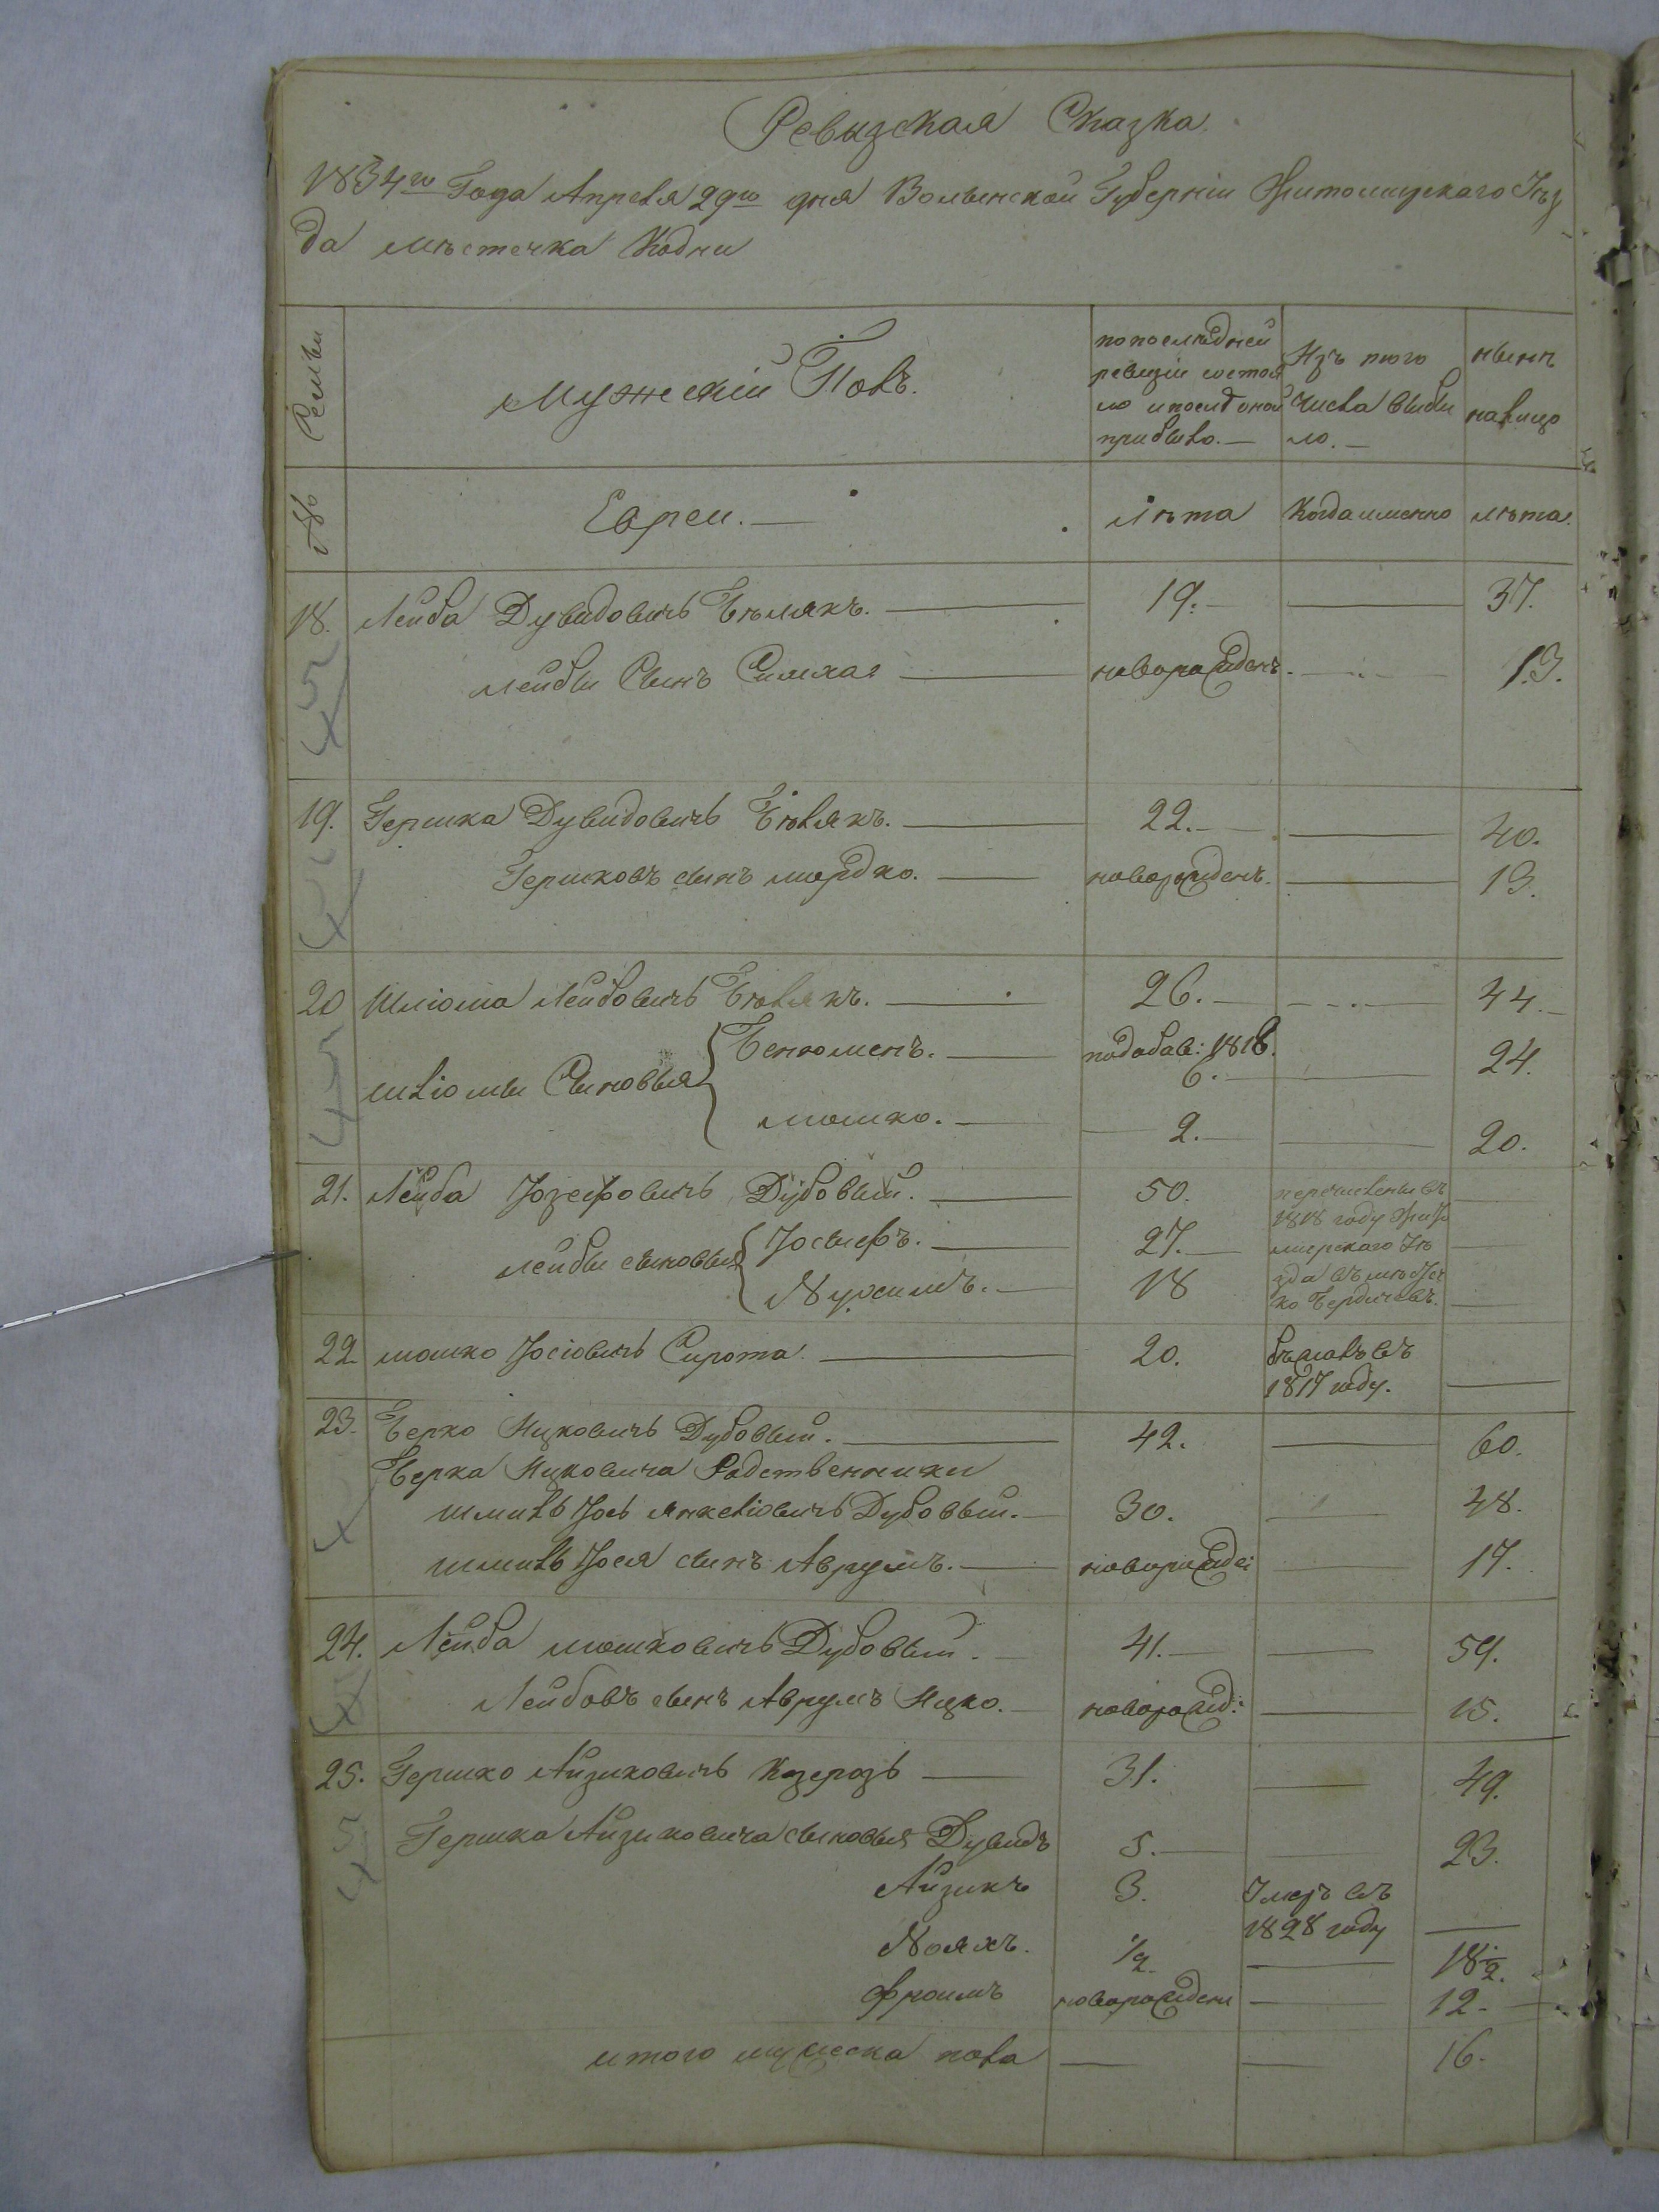 Ревизская Сказка
1834го Года Апреля 29го дня Волынской Губернии Житомирскаго Уѣз
да мѣстечка Кодни
Семьи
Мужескій Полъ.
по последней ревизіи состоя ло и после оной прибыло.
Изъ того числа выбы ло.
нынѣ налицо
№
Евреи.
лѣта
Когда именно
лѣта.
18. Лейба Дувидовичь Бѣлякъ. 19. 37.
Лейбы Сынъ Симха новорожденъ. 13.
19. Гершка Дувидовичь Бѣлякъ. 22. 40.
Гершковъ сынъ мордко. новорожденъ. 13.
20 Шліома Лейбовичь Бѣлякъ. 26. 44.
Шліомы Сыновья Бенюменъ. подобав: 1818. 6. 24.
мошко. 2. 20.
21. Лейба Іозефовичь Дубовый. 50. перечислены въ
1818 году Жито
Лейбы сыновья Іосыефъ. 27. мирскаго Уѣ
зда въ мѣстеч
Нухимъ. 18 ко Бердичевъ.
22. мошко Іосіовичь Сирота. 20. бѣжалъ въ
1817 году.
23. Берко Ицковичь Дубовый. 42. 60.
Берка Ицковича Родственники
Шмиль Іось Янкеліовичь Дубовый. 30. 48.
Шмиль Іося сынъ Аврумъ. новорожде: 17.
24. Лейба мошковичь Дубовый. 41. 59.
Лейбовъ сынъ Аврумъ Ицко. новорожд: 15.
25. Гершко Айзиковичь 31. 49.
Гершка Айзиковича сыновья Дувидъ 5. 23.
Айзикъ 3. Умеръ въ
1828 году
Нояхъ. 1/2 18 1/2.
Фроимъ новорожден 12.
итого мужеска пола 16.